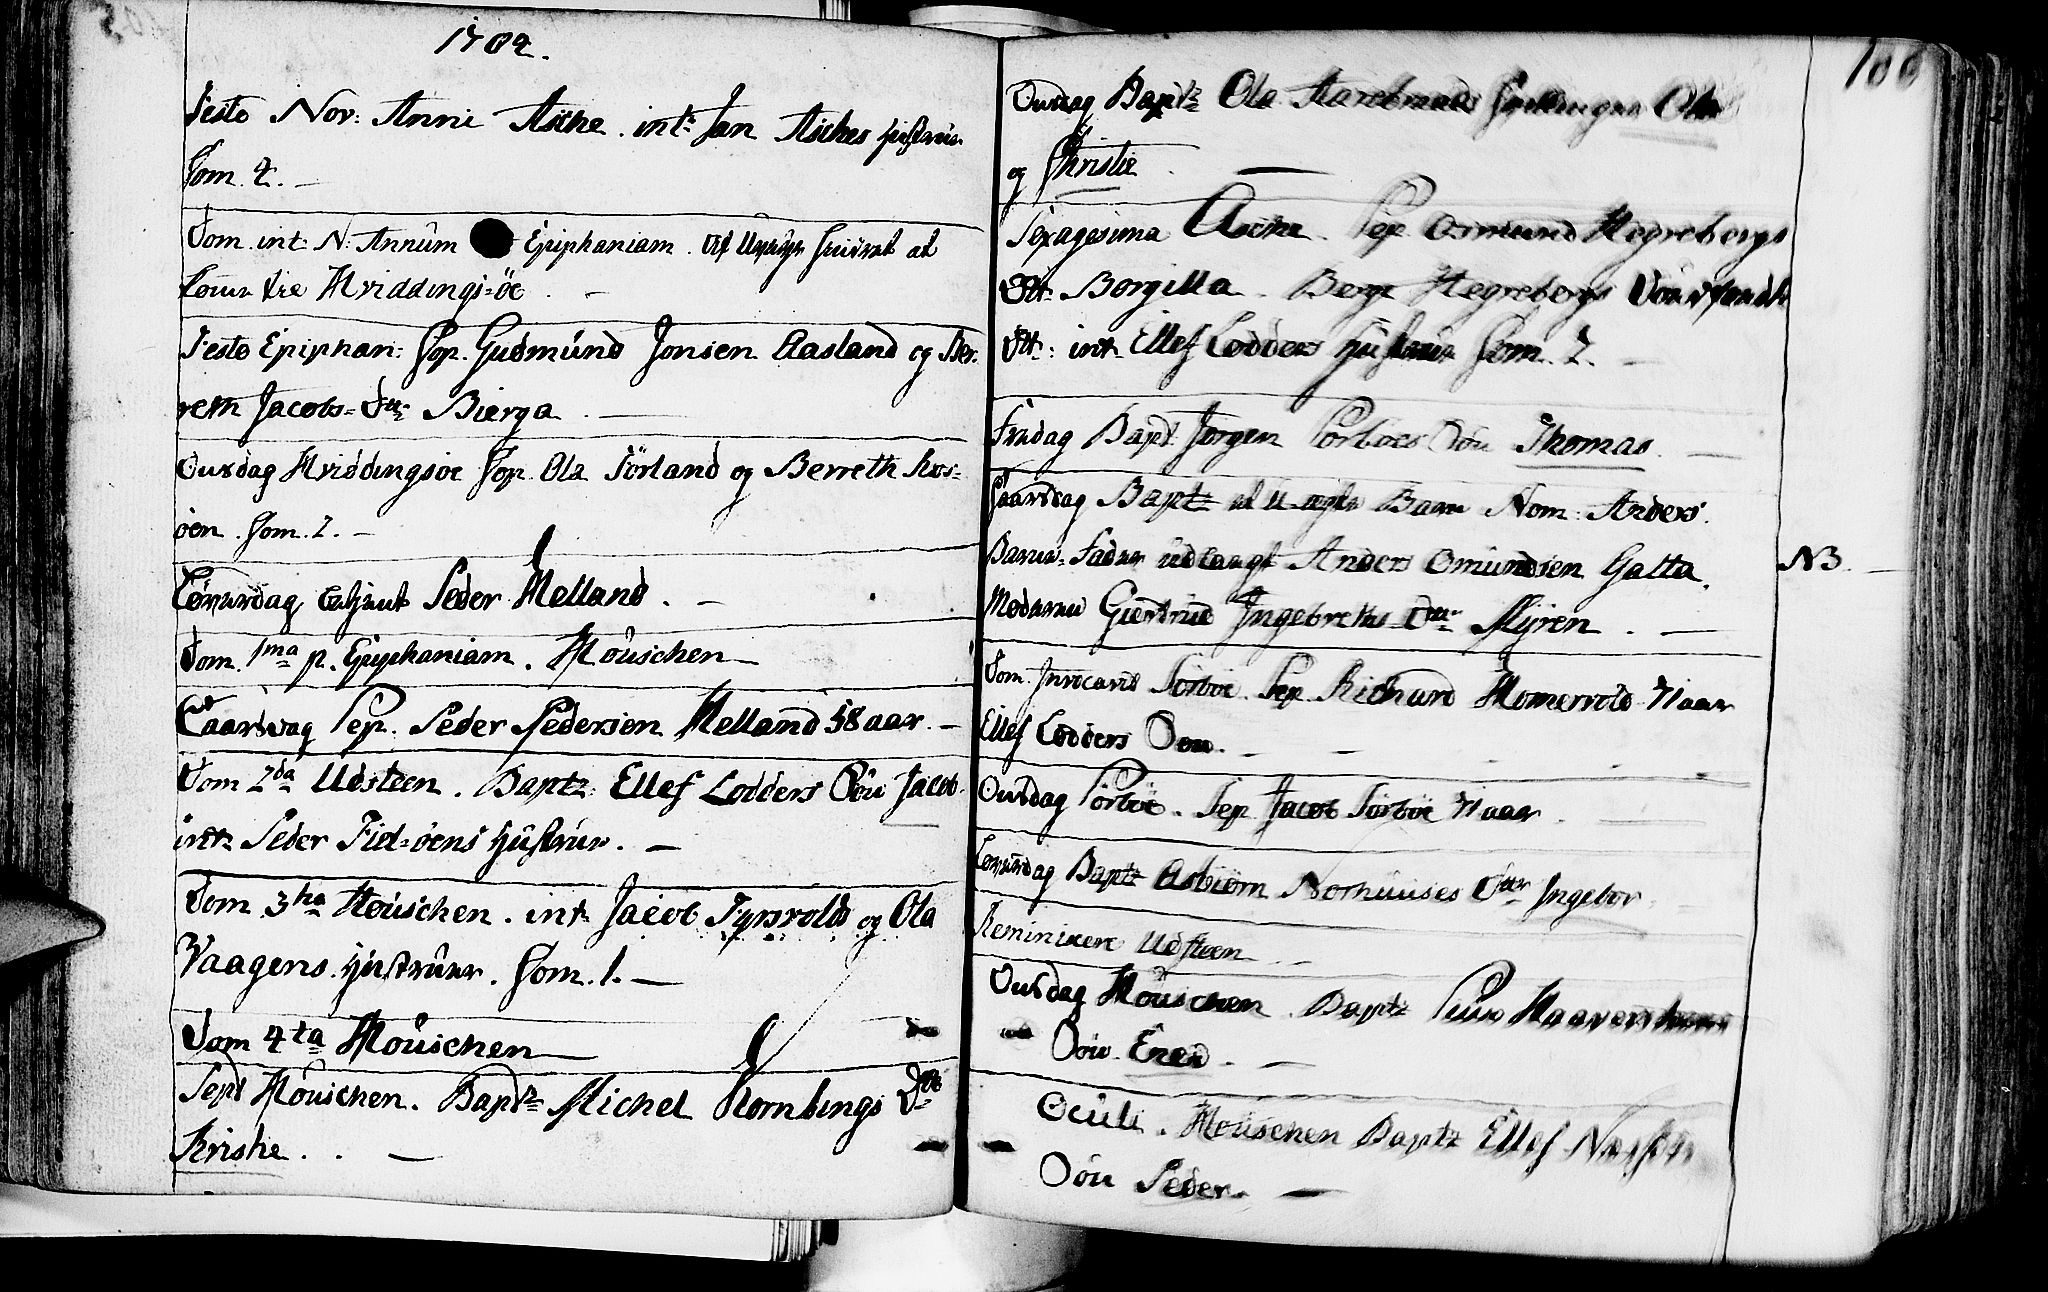 1702.
Festo Nov: Anni Aske. int: Jan Askes Hustrue
Com. 2.
Dom. int: N: Annum Epiphaniam. Af at
komme til Hviddings-öe.
Festo Epiphan: Cop. Gudmund Jonsen Aasland og Ber-
reth Jacobs-Dtr Bierga.
Onsdag Hviddingsöe Cop. Ola Sörland og Berreth Ros-
öen. Com. 2.
Löwerdag betjent Peder Helland.
Dom. 1ma p. Epiphaniam. Houschen
Taarsdag Sep. Peder Pedersen Helland 58 aar.
Dom 2da Udsteen. Baptz: Ellef Lodders Sön Jacob.
intr Peder Fiel-öens Hustrue.
Dom 3tia Houschen. intr Jacob Tysvolds og Ola
Vaagens Hustruer. Com. 1.
Dom 4ta Houschen
Sept Houschen. Baptz Michel Hombings Dtr
Kriste.
100
Onsdag Baptz Ola Ola
og Christie.
Sexagesima Aske. Sep. Osmund Hegrebergs
Dtr. Borgilla. Berge Hegrebergs
Dtr: intr Ellef Lodders Hustrue Com. 2.
Fredag Bapt. Jörgen Sörböes Sön Thomas.
Taarsdag Baptz et u-ægte Barn Nom: Anders.
Barne-Fader udlangt Anders Omundsen Galta. NB.
Moderen Giertrud Ingebreths Dtr Myren.
Dom. Invocavit Sörböe. Sep. Richard Homervold 71 aar
Ellef Lodders Sön.
Onsdag Sörböe. Sep Jacob Sörböe 71 aar.
Löwerdag Baptz Asbiörn Norhuuses Dtr Ingebor.
Reminiscere Udsteen
Onsdag Houschen. Baptz
Sön. Ened.
Oculi. Houschen Baptz Ellef
Sön Peder.